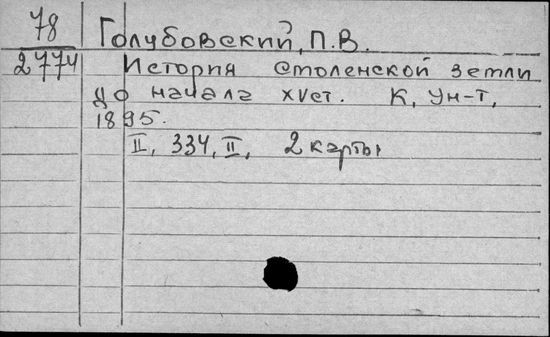 78
2774
Голубовский, П.В.
История Смоленской земли
до начала XV ст. К, Ун-т,
1895.
II, 334, II, 2 карты